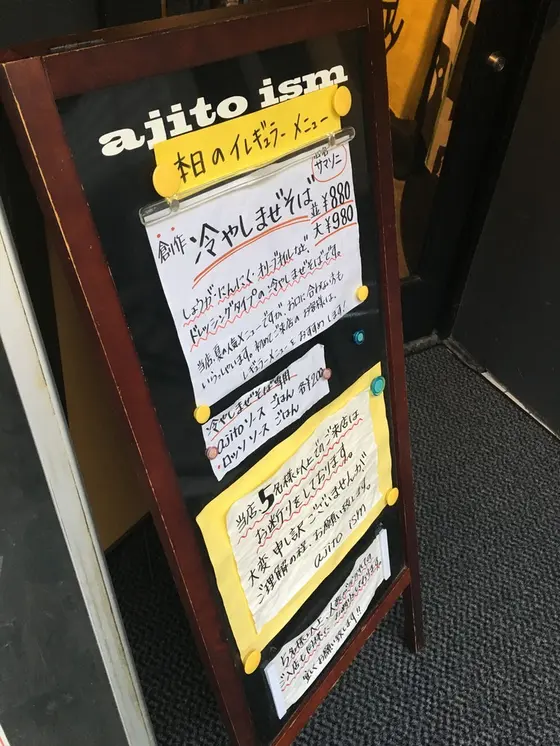 ajito ism
本日のイレギュラーメニュー
サマソニ
創作 冷やしまぜそば
並 ¥880
大 ¥980
しょうが、にんにく、オリーブオイルなど、
ドレッシングタイプの冷やしまぜそばです。
当店、夏の人気メニューですが、お口に合わない方も
いらっしゃいます。初めてご来店のお客様は、
レギュラーメニューをおすすめします!
冷やしまぜそば専用
ajitoソースごはん 各¥200
ロッソソースごはん
当店、5名様以上でのご来店は、
お断りをしております。
大変申し訳ございませんが
ご理解の程、お願い致します。
ajito ism
5名様以上、人数が分かれての
ご入店も同様に
宜しくお願い致します!!